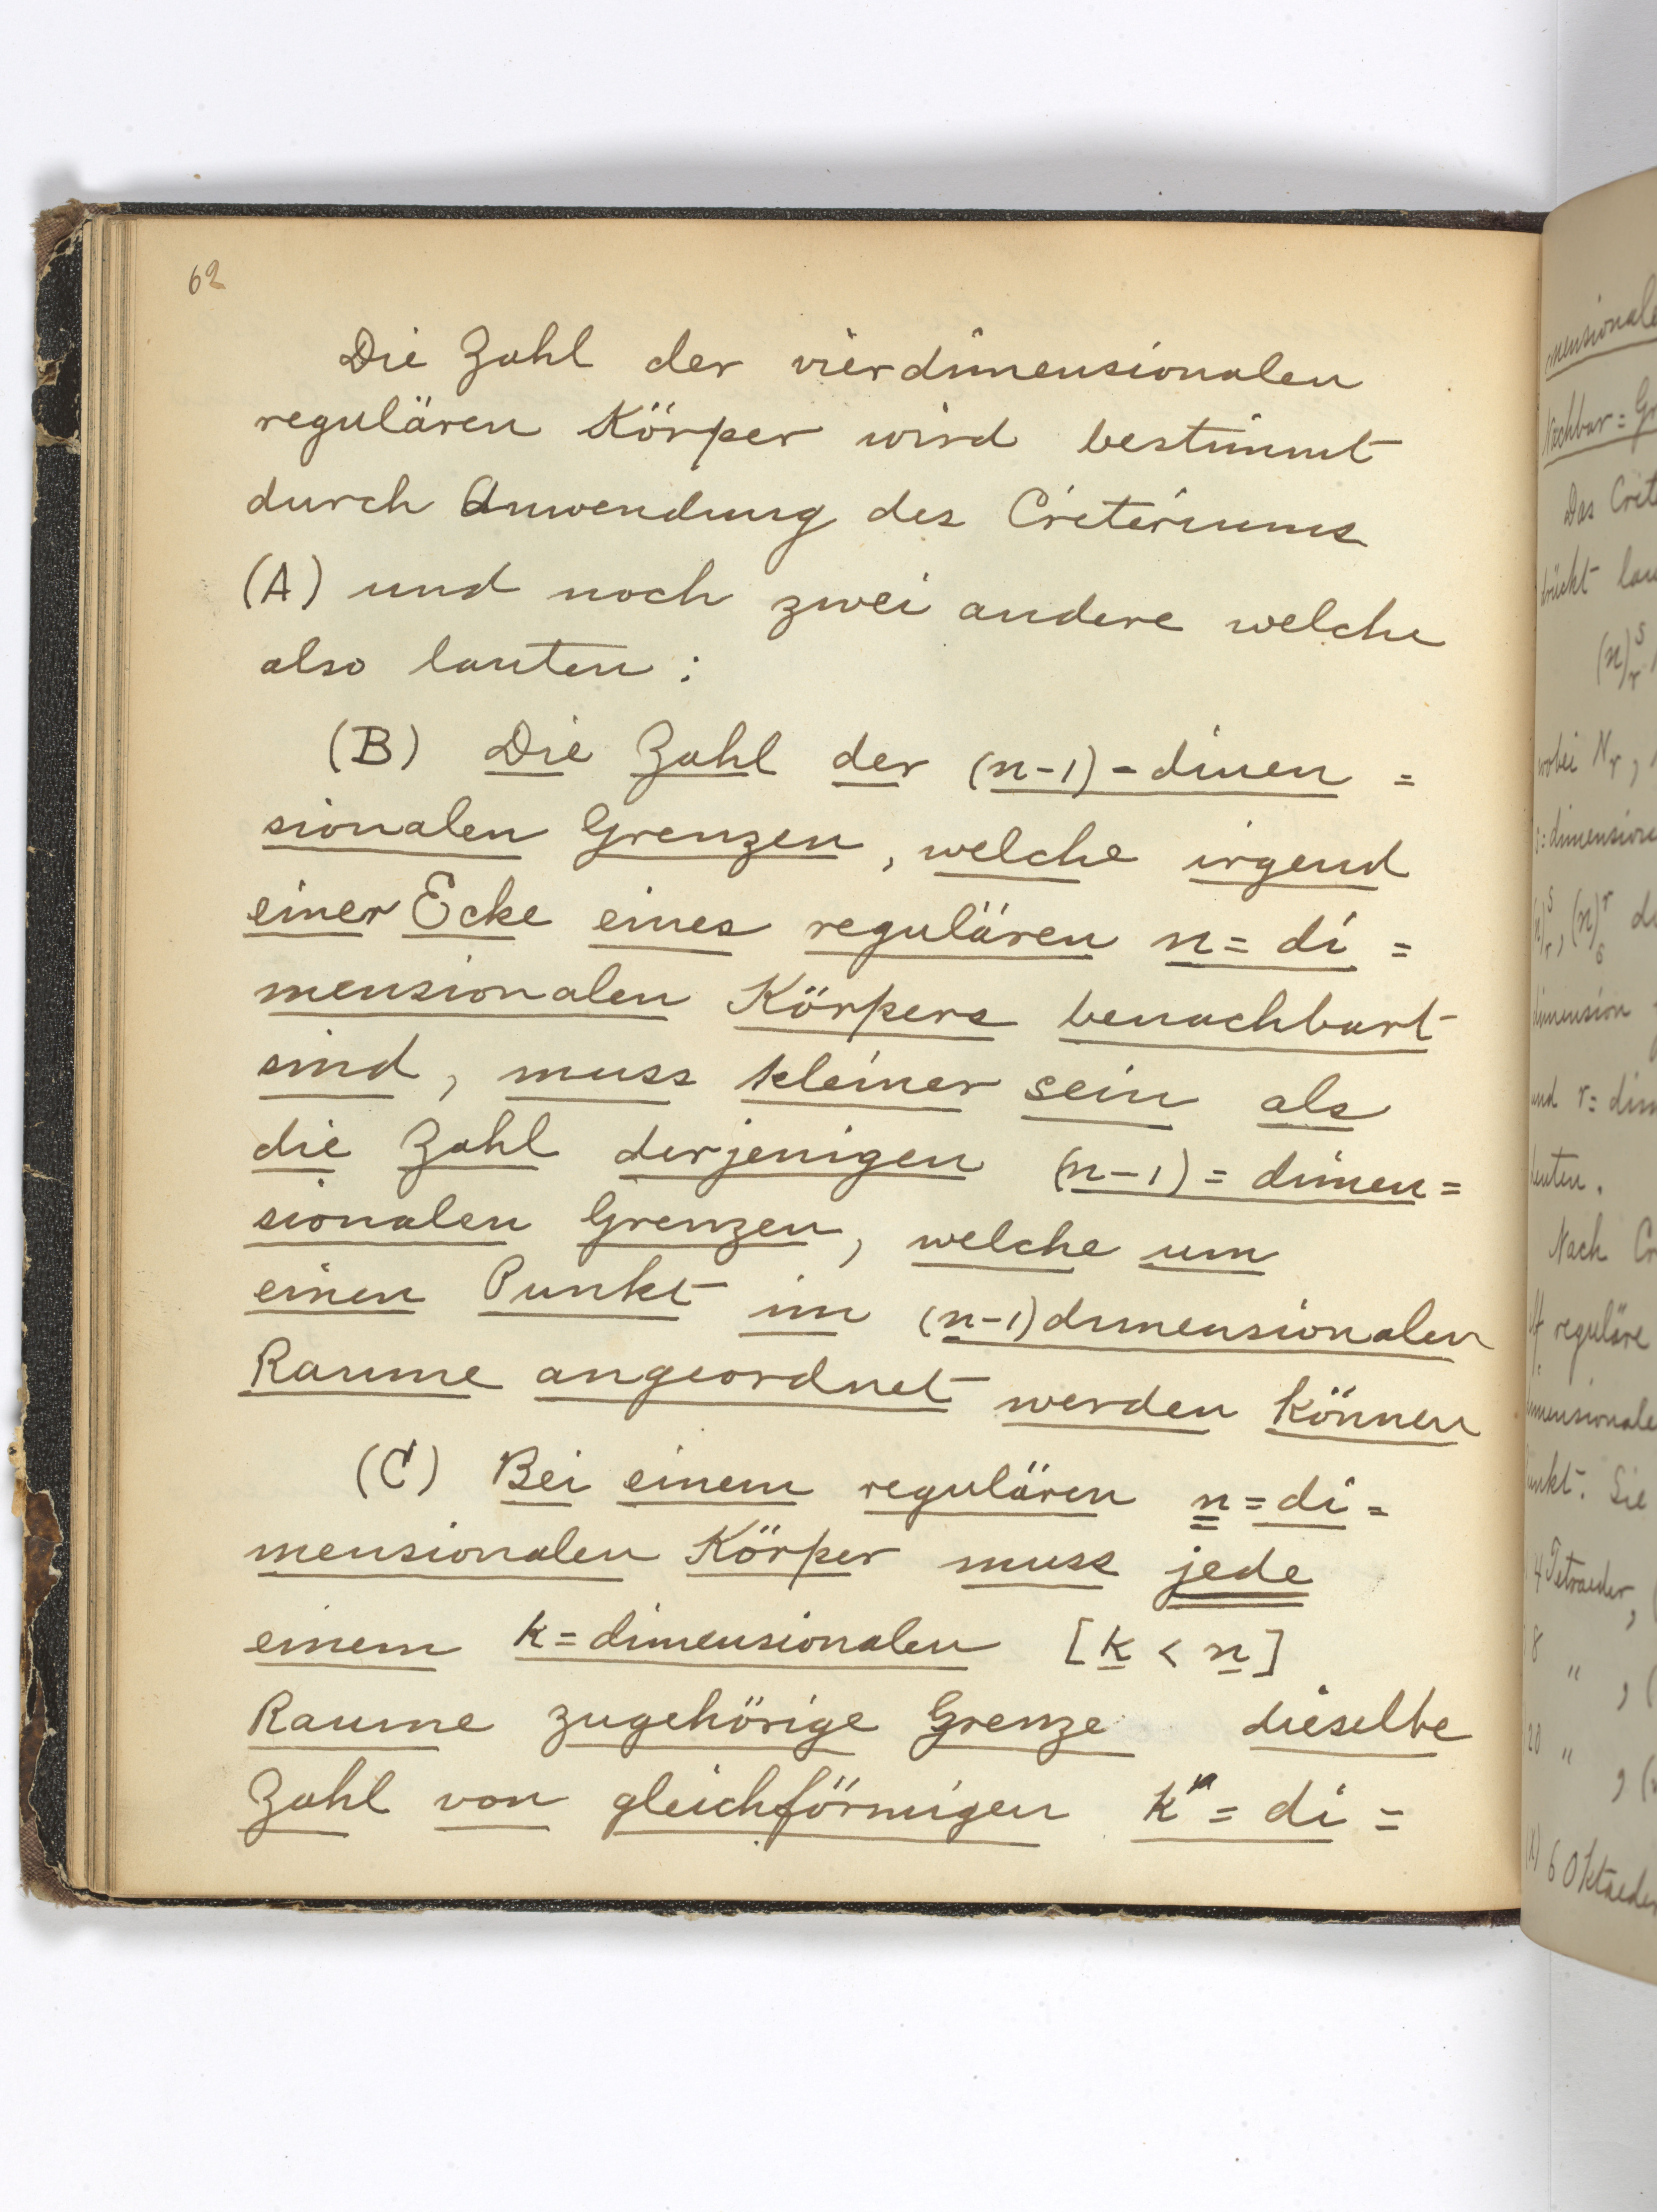 62
Die Zahl der vierdimensionalen
regulären Körper wird bestimmt
durch Anwendung des Criteriums
(A) und noch zwei andere welche
also lauten :
(B) Die Zahl der (n-1)-dimen=
sionalen Grenzen, welche irgend
einer Ecke eines regulären n=di=
mensionalen Körpers benachbart
sind, muss kleiner sein als
die Zahl derjenigen (n-1)=dimen=
sionalen Grenzen, welche um
einen Punkt im (n-1)dimensionalen
Raume angeordnet werden können
(C) Bei einem regulären n=di=
mensionalen Körper muss jede
einem k=dimensionalen [k < n]
Raume zugehörige Grenze dieselbe
Zahl von gleichförmigen =di=
mensionale
Nachbar=
Das
(n)
wobei Nr,
und r=
Nach
reguläre
Sie
4 Tetraeder,
8 "
20 "
6 Oktaeder